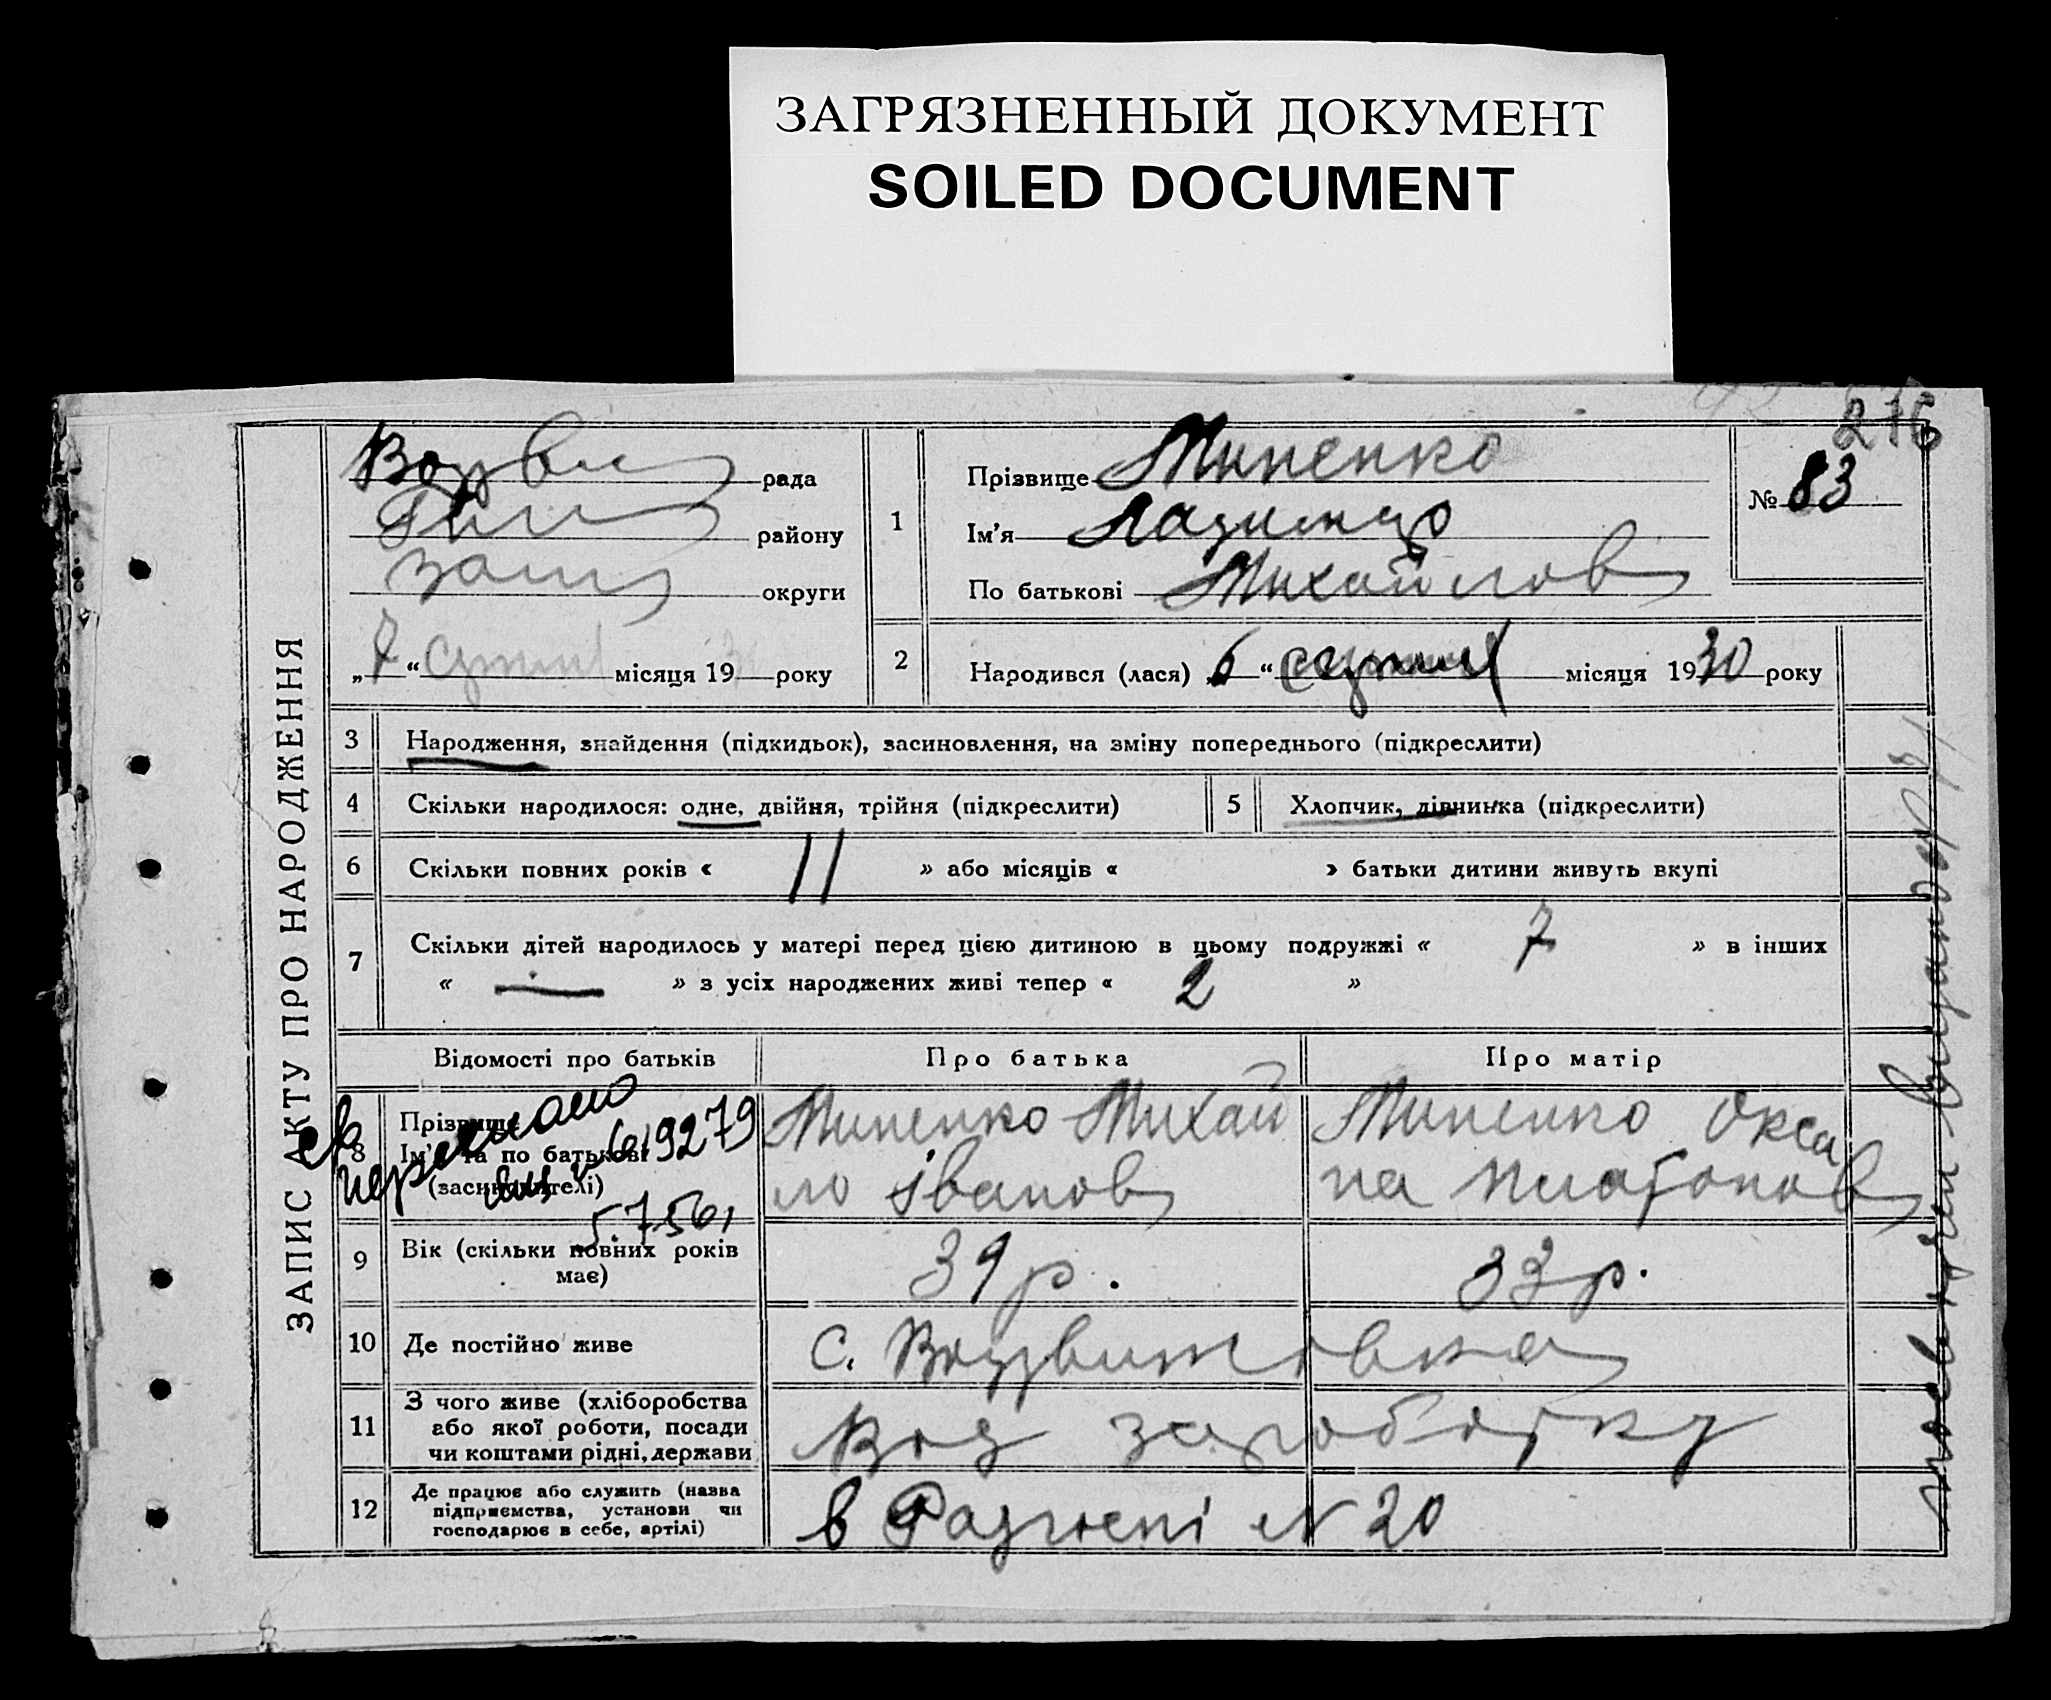 ЗАГРЯЗНЕННЫЙ ДОКУМЕНТ
SOILED DOCUMENT
216
ЗАПИС АКТУ ПРО НАРОДЖЕННЯ
рада
району
округи
„7“ січня місяця 19 року
1
Прізвище Миненко
Ім'я
По батькові Михайлов
№ 83
2
Народився (лася) „6“ місяця 1930 року
3 Народження, знайдення (підкидьок), засиновлення, на зміну попереднього (підкреслити)
4 Скільки народилося: одне, двійня, трійня (підкреслити)
5 Хлопчик, дівчинка (підкреслити)
6 Скільки повних років « 11 » або місяців « » батьки дитини живуть вкупі
7 Скільки дітей народилось у матері перед цією дитиною в цьому подружжі « 7 » в інших
« — » з усіх народжених живі тепер « 2 »
Відомості про батьків
Про батька
Про матір
8 Прізвище
Ім'я та по батькові
(засиновителі)
Миненко Михай
ло Іванов
Миненко Окса
на Платонов
9 Вік (скільки повних років
має)
39 р.
33 р.
10 Де постійно живе
с. Воздвижовка
11 З чого живе (хліборобства
або якої роботи, посади
чи коштами рідні, держави
заработку
12 Де працює або служить (назва
підприємства, установи чи
господарює в себе, артілі)
в Радгоспі № 20